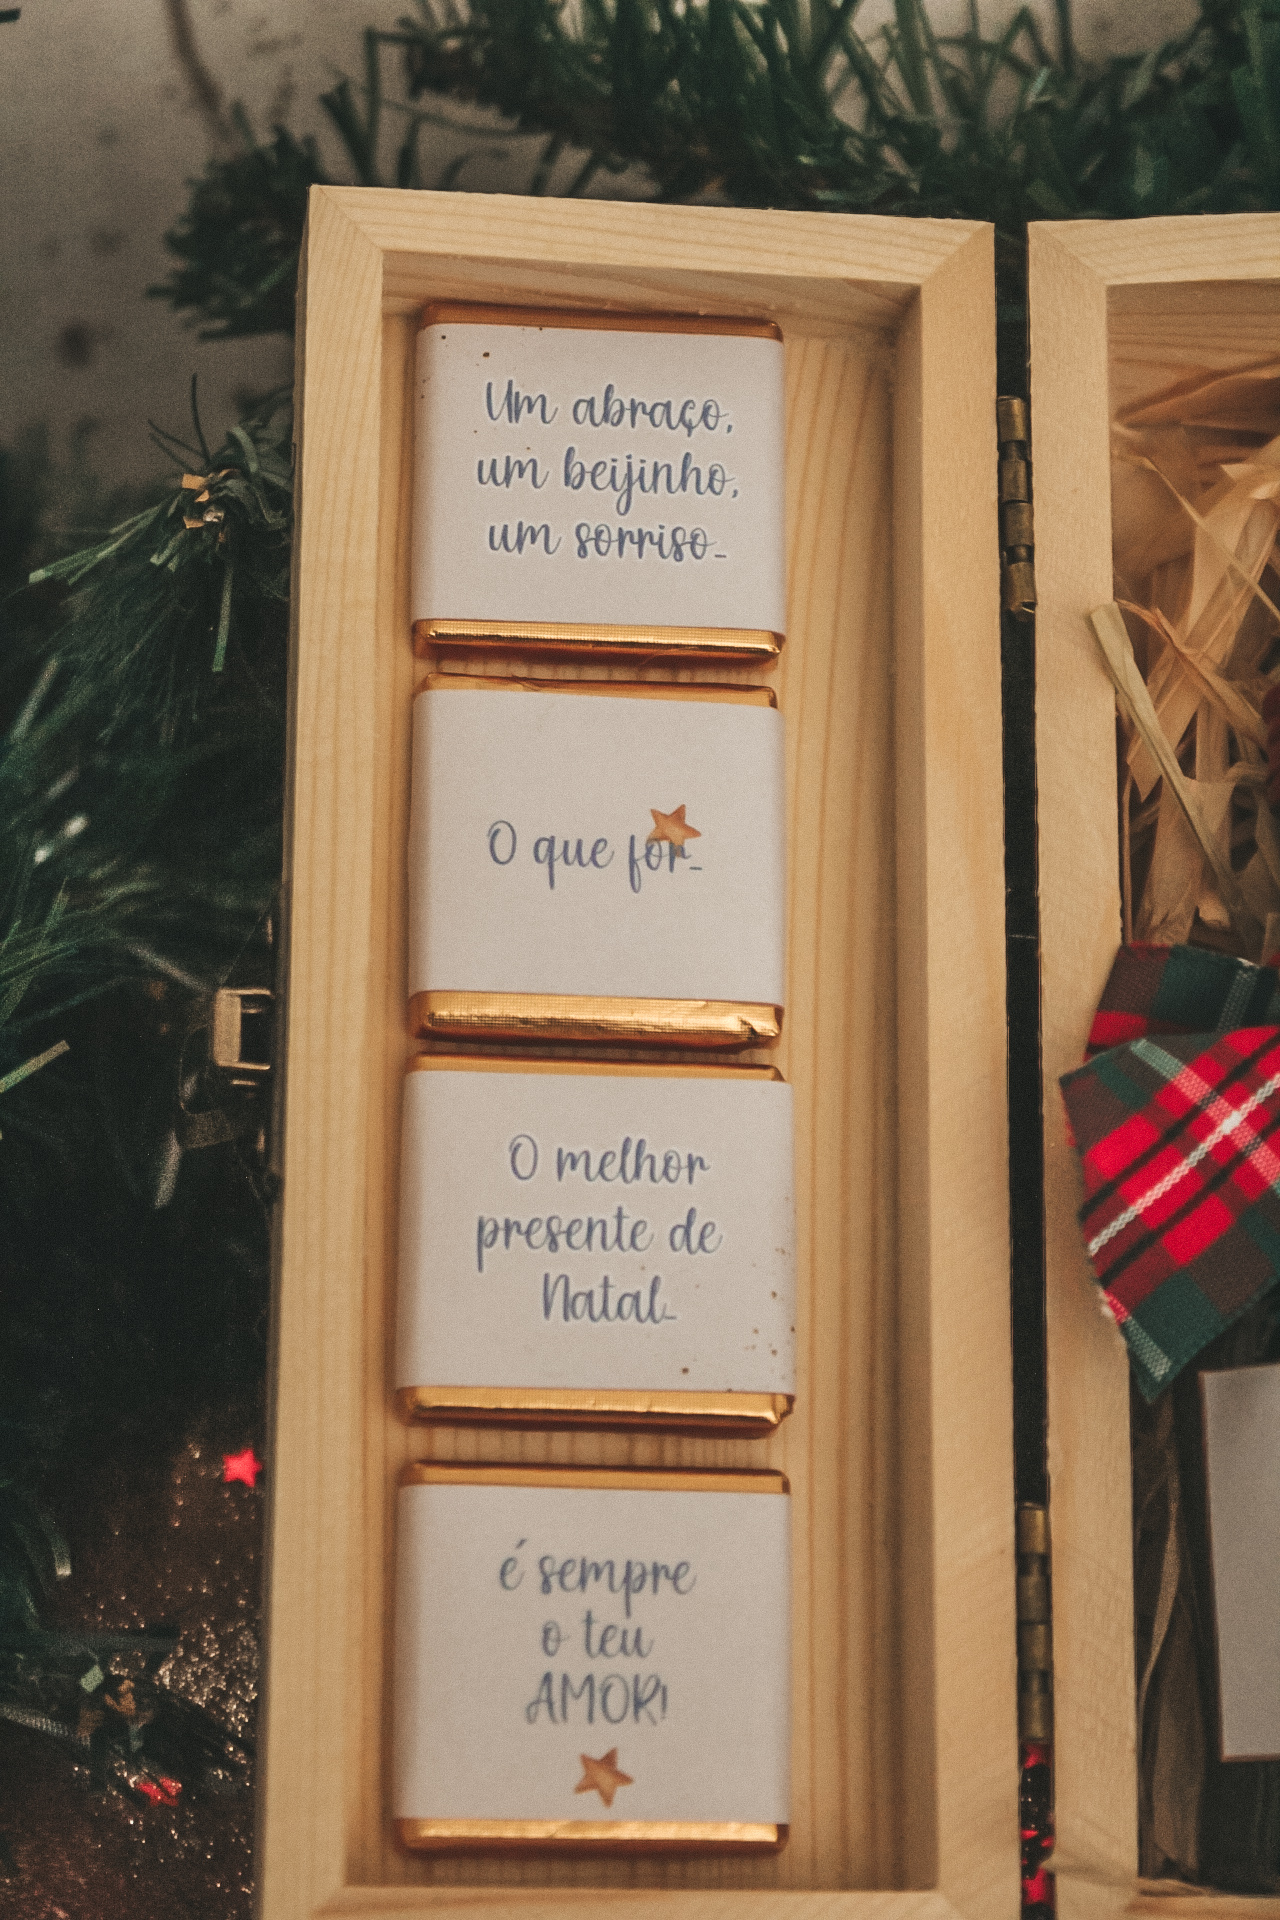 Um abraço,
um beijinho,
um sorriso...
O que for...
O melhor
presente de
Natal...
é sempre
o teu
AMOR!